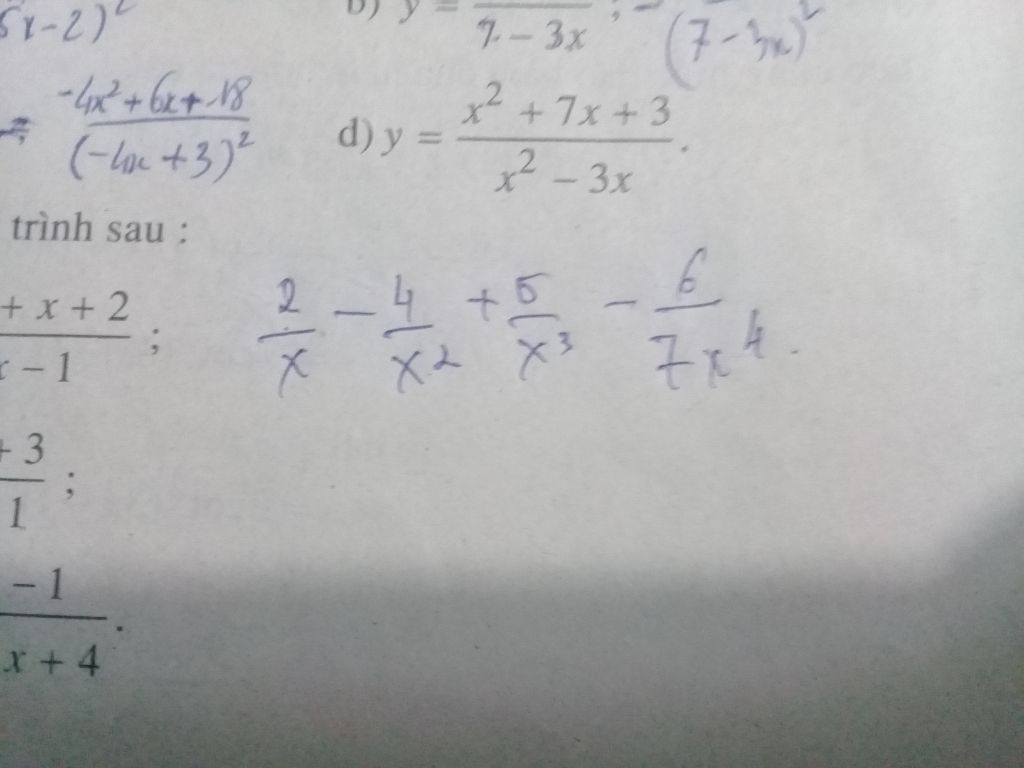 5x-2)²
b) y = 7 - 3x ; - (7-3x)²
= -4x²+6x+18 / (-4x+3)²
d) y = x² + 7x + 3 / x² - 3x .
trình sau :
+ x + 2 / x - 1 ;
2/x - 4/x² + 5/x³ - 6/7x⁴ .
+ 3 / 1 ;
- 1 / x + 4 .